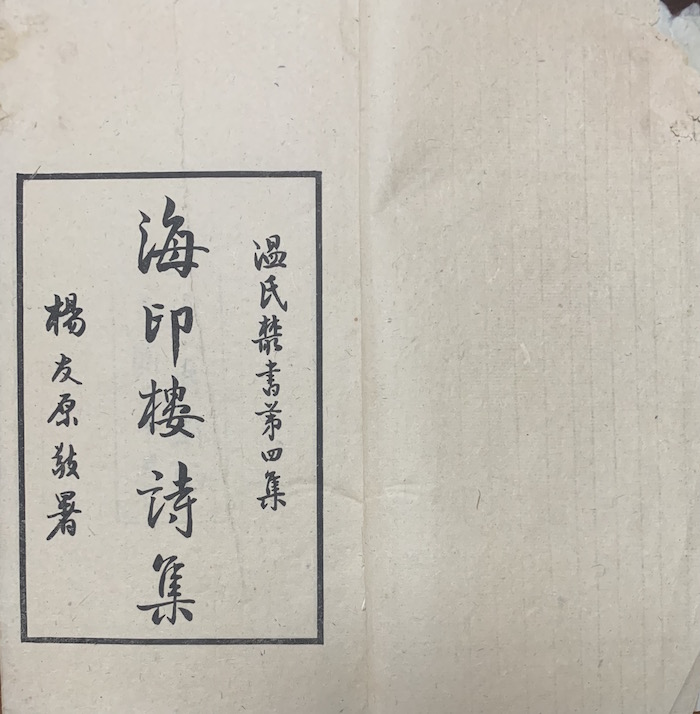 温氏叢書第四集
海印樓詩集
楊友原敬署